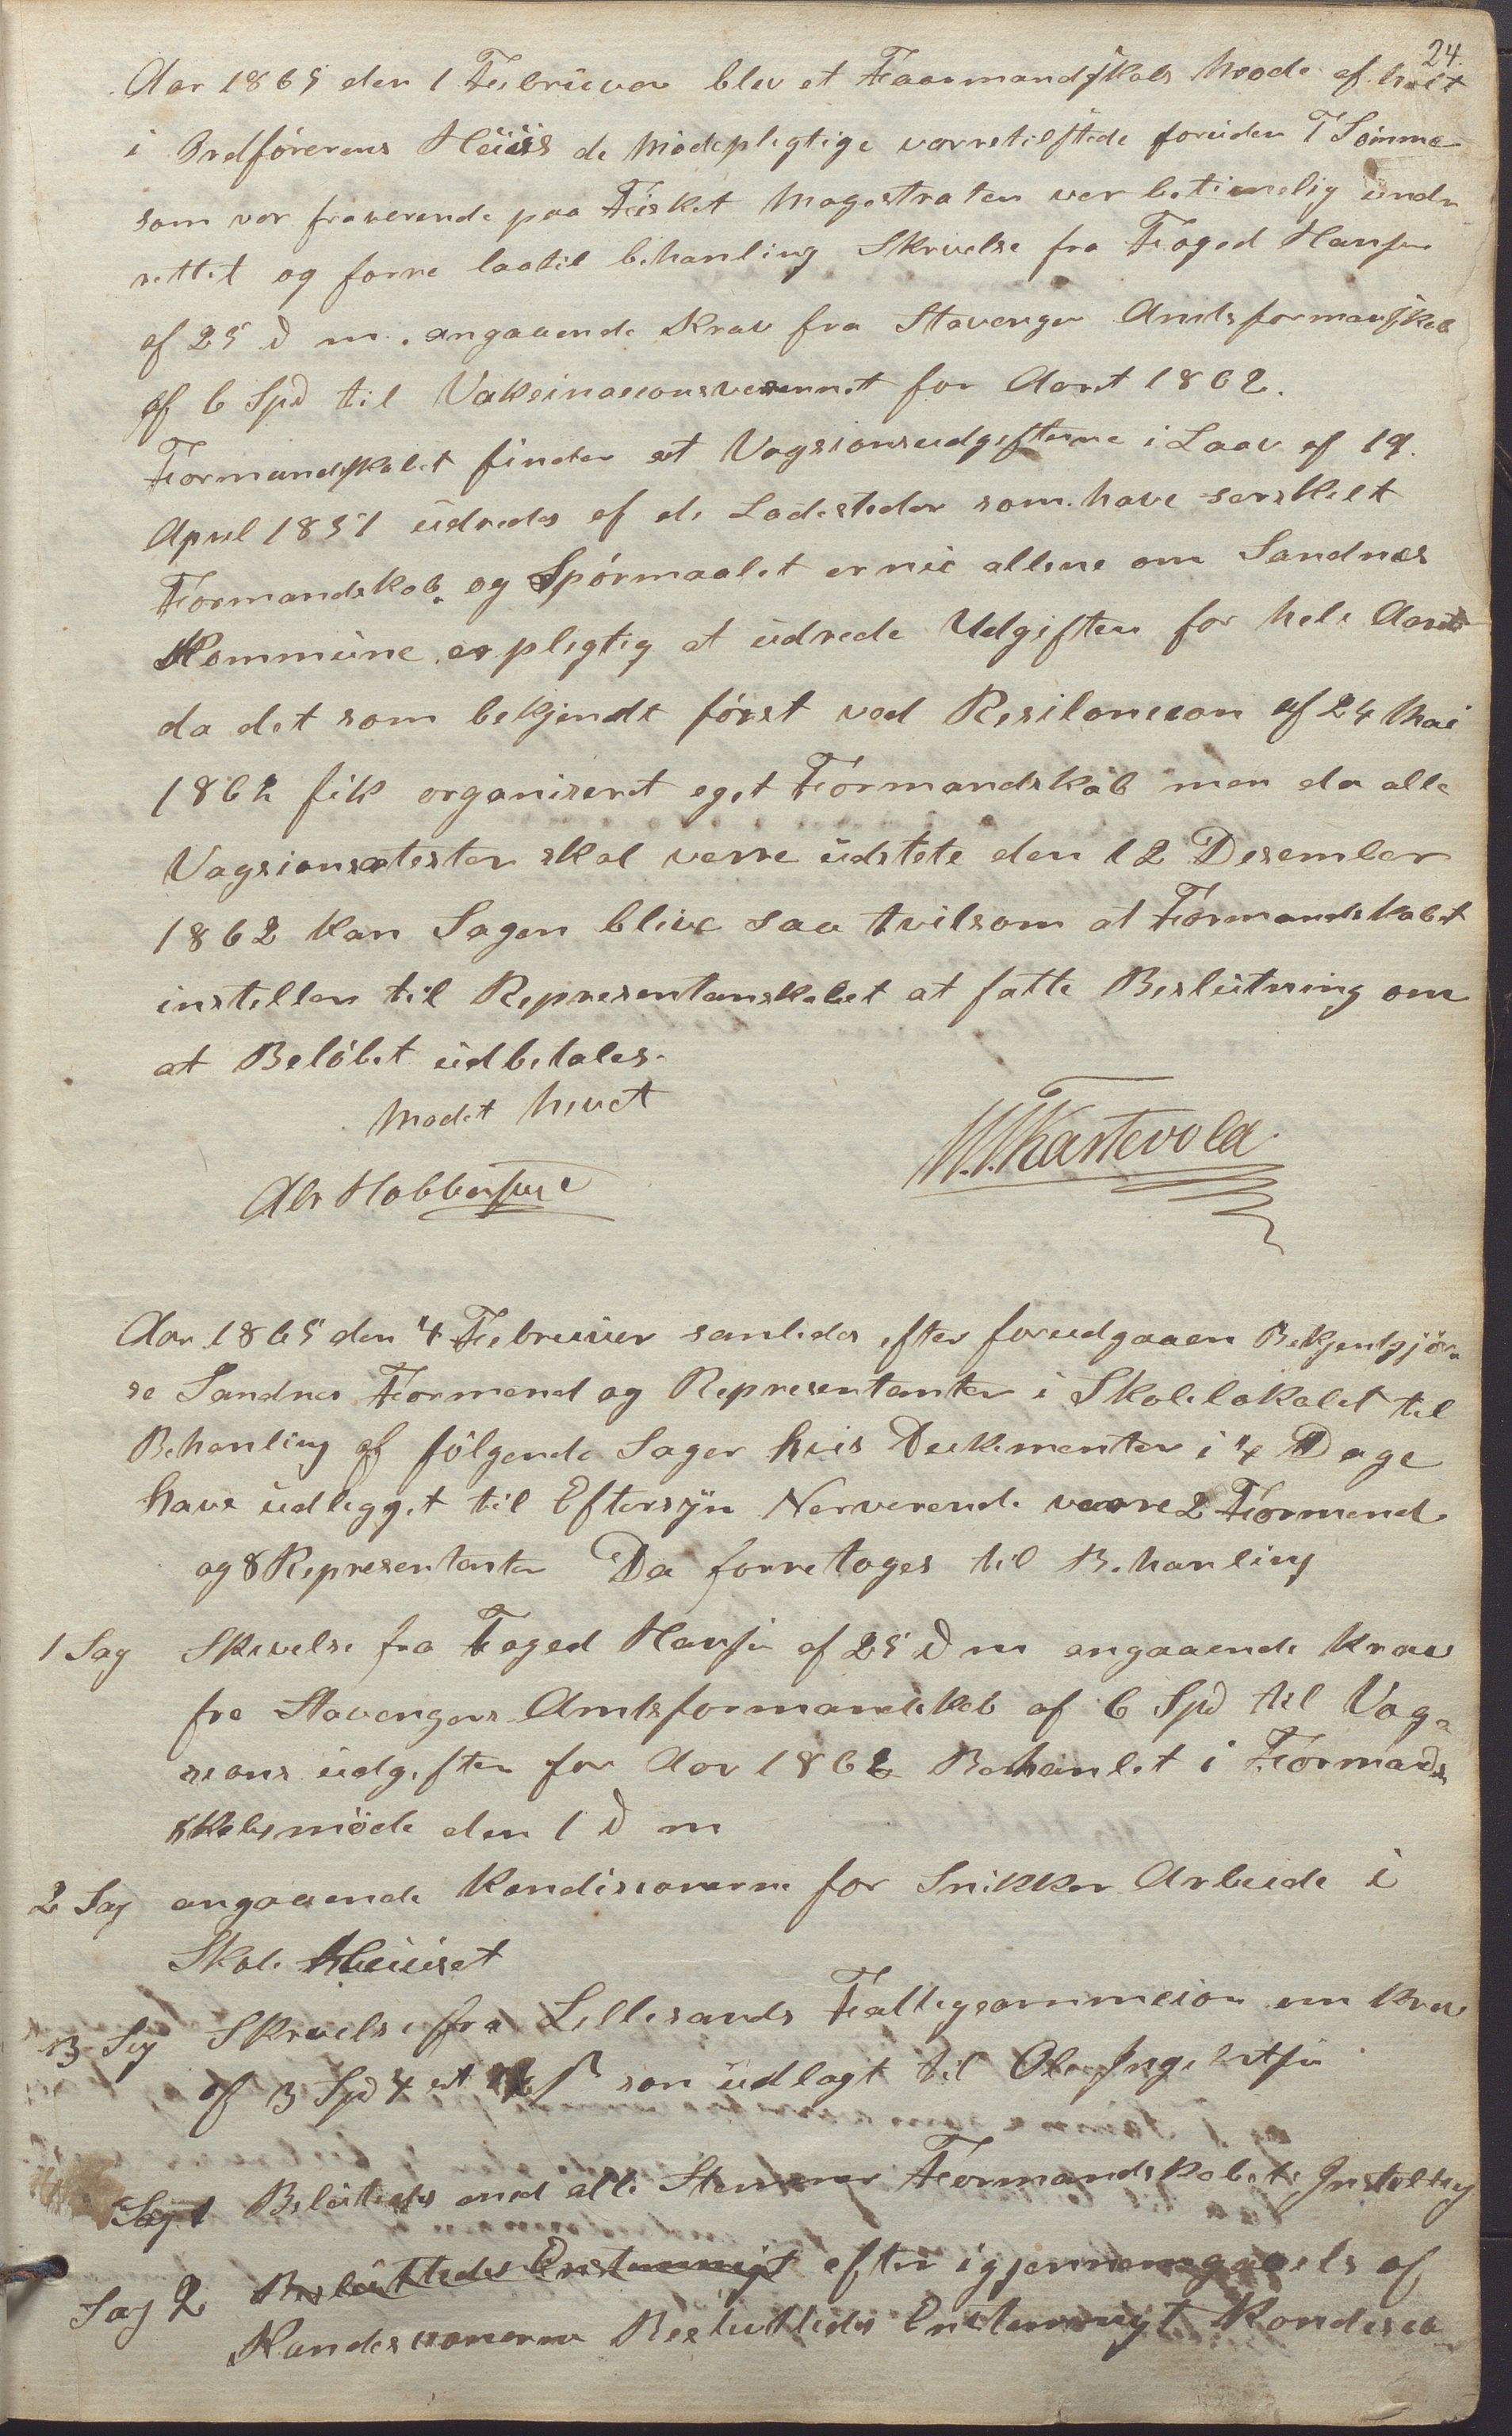 24.
Aar 1865 den 1 Februvar blev et Faarmandskabs Møde afholt
i Ordførerens Huus de Mødepligtige varretilstede foruden T Sømme
som var fraverende paa Fisket Magestraten var betimelig undr
rettet og forre laatil behanling Skrivelse fra Foged Hansen
af 25 d m. angaaende Krav fra Stavenger Amtsformanskab
af 6 Spd til Vaksinasionsvesennet for Aaret 1862.
Formandskabet finder at Vagsionsudgifterne i Laav af 19.
April 1851 udredes af de Ladesteder som have serskilt
Formandskab. og Spørmaalet er nu allene om Sandnæs
Kommune er pligtig at udrede Udgiften for hele Aaret
da det som bekjendt først ved Resilonsion af 24 Mai
1862 fik organiseret eget Formandskab men da alle
Vagsionsatester skal verre udstete den 12 Desember
1862 kan Sagen blive saa tvilsom at Formandskabet
instiller til Representanskabet at fatte Beslutning om
at Beløbet udbetales.
Modet hevet
Abr Habbersen
Aar 1865 den 4 Februver samledes efter forudgaaen Bekjentgjør-
se Sandnes Formend og Representanter i Skolelokalet til
Behanling af følgende Sager hvis Dukementer i 4 Dage
have udlegget til Eftersyn Nerverende varre 2 Formend
og 8 Representanter Da forretoges til Behanling
1 Sag Skrivelse fra Foged Hansen af 25 d m angaaende Krav
fra Stavengers Amtsformandskab af 6 Spd til Vag-
sions udgifter for Aar 1862 Behanlet i Formands
skabsmøde den 1 d m
2 Sag angaaende Kondisionerne for Snikker Arbeide i
Skole Huuset
3 Sag Skrivelse fra Lillesands Fattigcommision om Krav
af 3 Spd 4 ort som udlagt til Ole Ingebretsen
Sag 1 Beslutedes med alle Stemmer Formandskabets Instilling
Sag 2 Besluttedes Enstemmigt efter igjennemgaaels af
Kondesionerne Besluttedes Enstemmigt Kondesio-